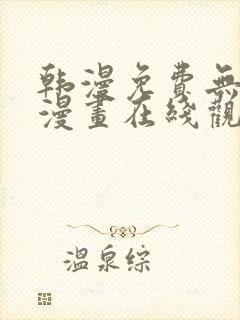 韩漫免費無
漫畫在线觀
温泉综